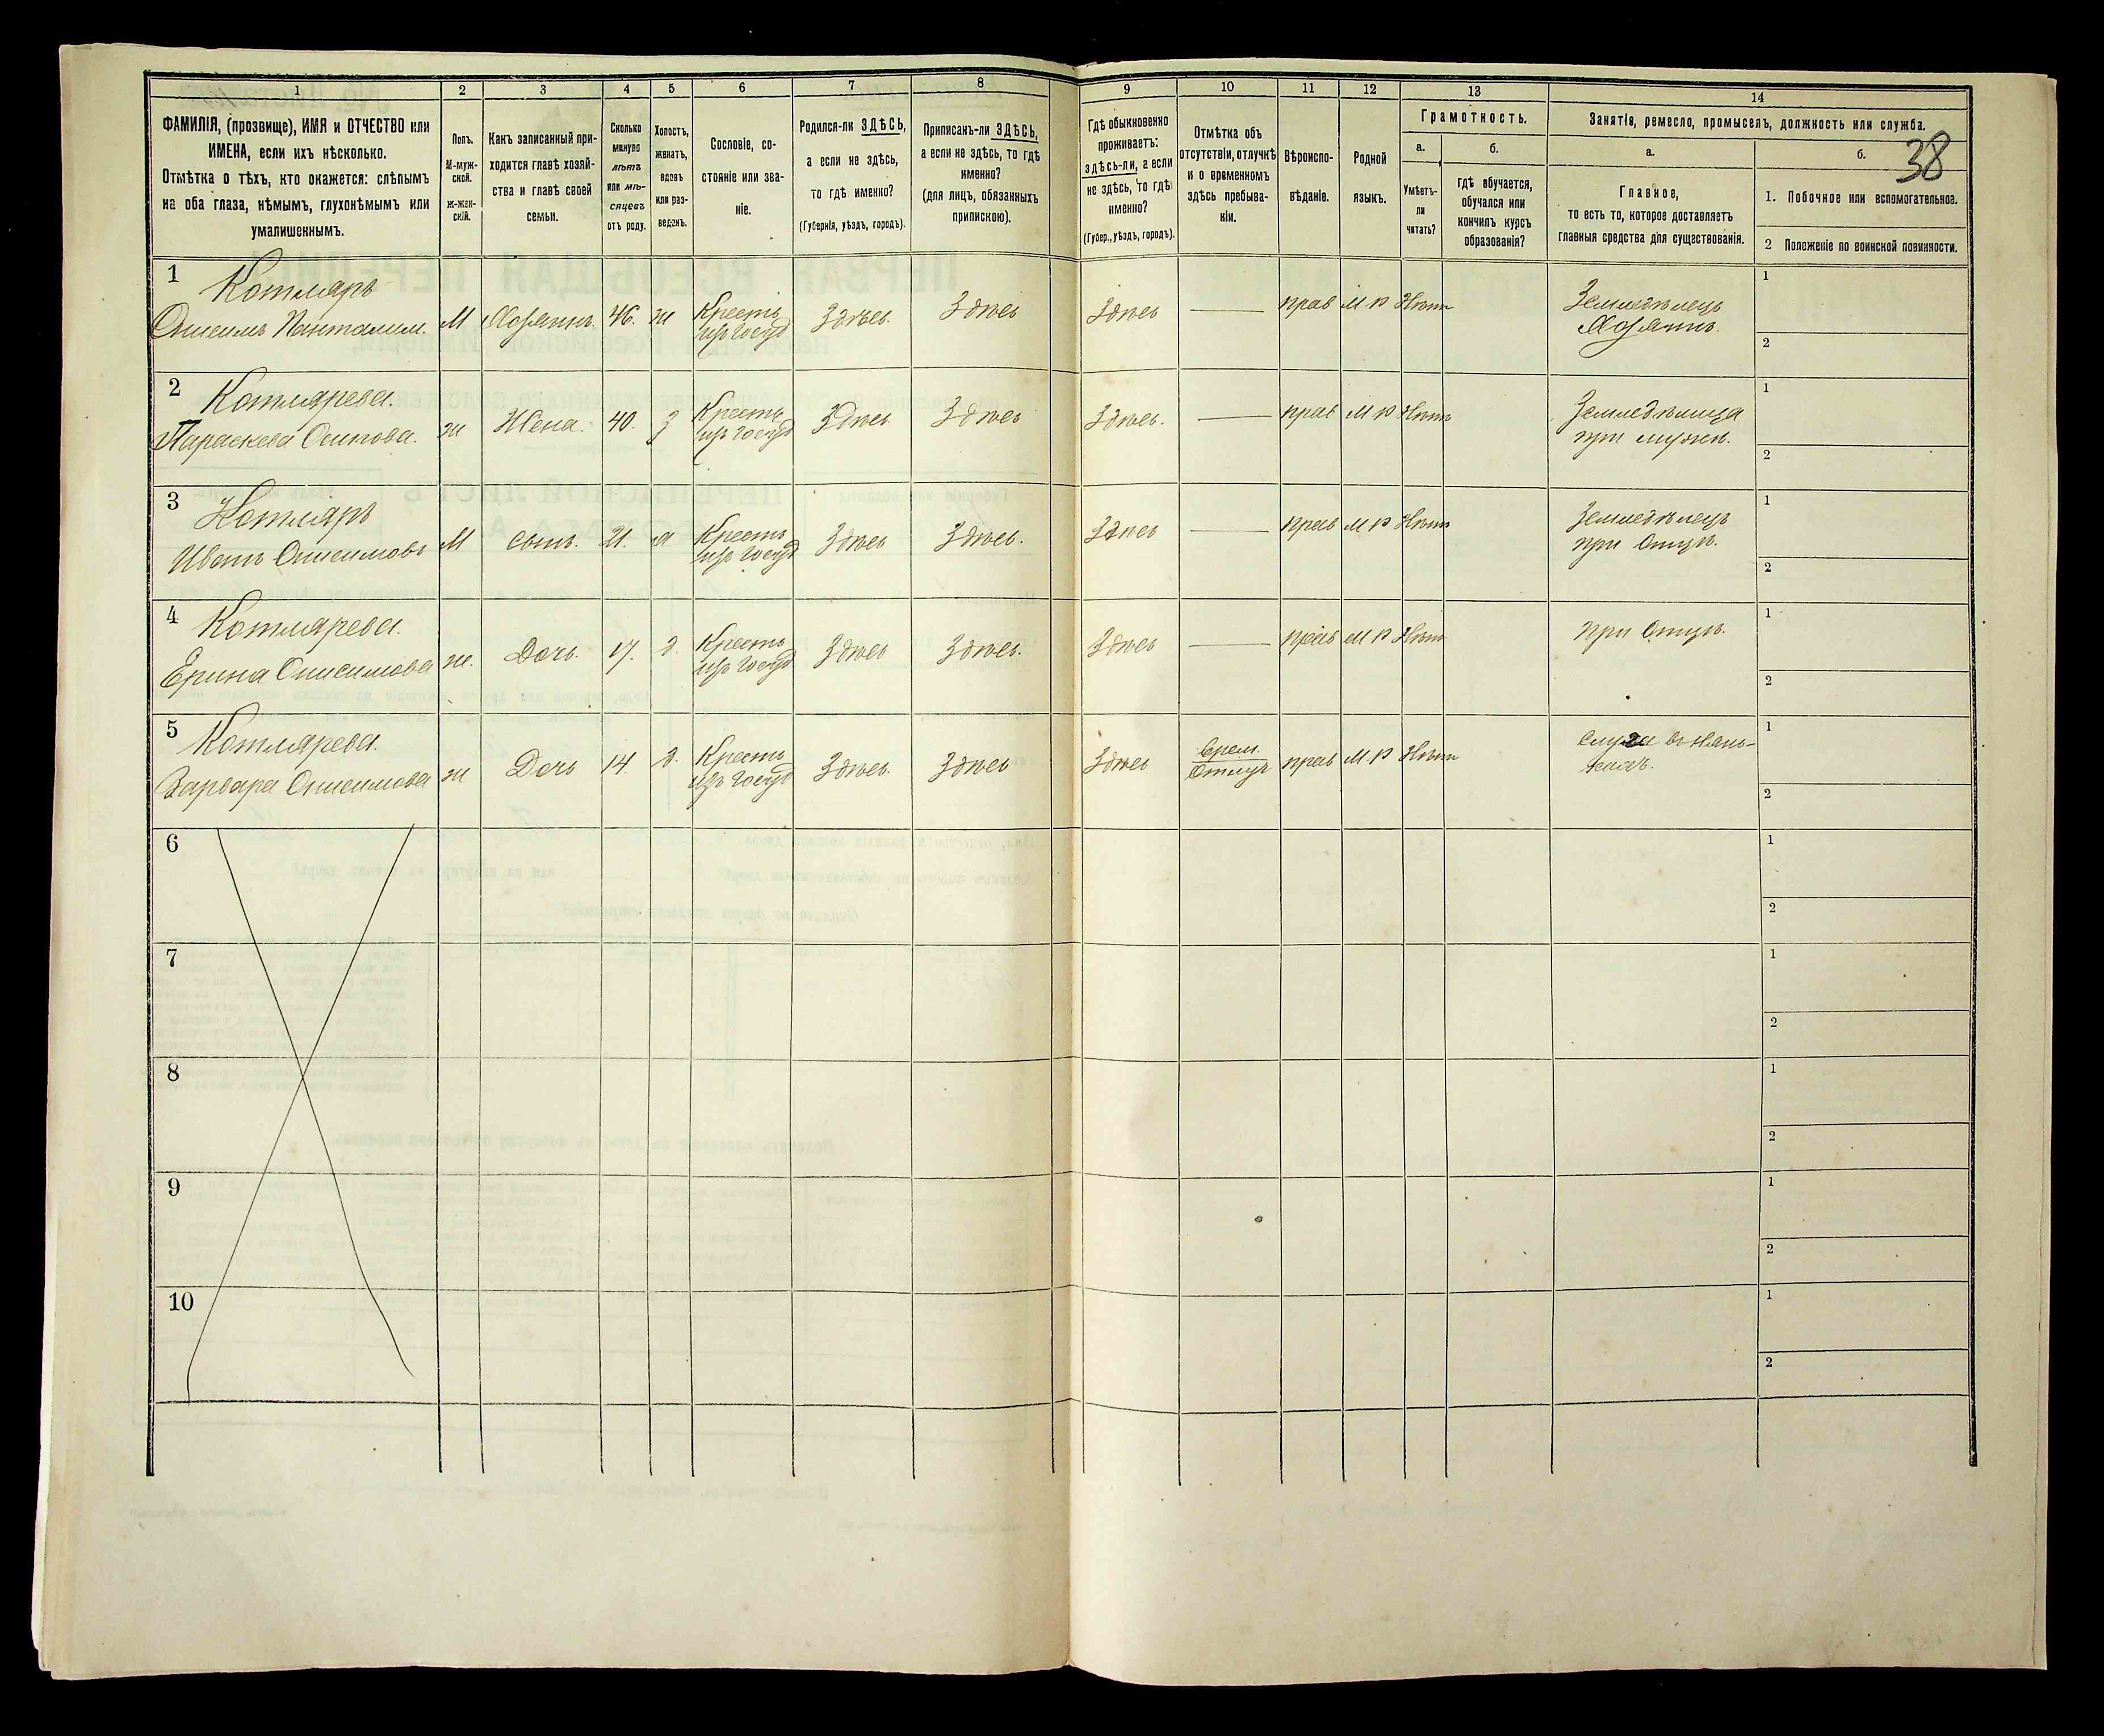 1 2 3 4 5 6 7 8 9 10 11 12 13 14
38
ФАМИЛІЯ, (прозвище), ИМЯ и ОТЧЕСТВО или
ИМЕНА, если ихъ нѣсколько.
Отмѣтка о тѣхъ, кто окажется: слѣпымъ
на оба глаза, нѣмымъ, глухонѣмымъ или
умалишеннымъ.
Полъ.
М-муж-
ской.
Ж-жен-
скій.
Какъ записанный при-
ходится главѣ хозяй-
ства и главѣ своей
семьи.
Сколько
минуло
лѣтъ
или мѣ-
сяцевъ
отъ роду.
Холостъ,
женатъ,
вдовъ
или раз-
веденъ.
Сословіе, со-
стояніе или зва-
ніе.
Родился-ли ЗДѢСЬ,
а если не здѣсь,
то гдѣ именно?
(Губернія, уѣздъ, городъ).
Приписанъ-ли ЗДѢСЬ,
а если не здѣсь, то гдѣ
именно?
(для лицъ, обязанныхъ
припискою).
Гдѣ обыкновенно
проживаетъ:
здѣсь-ли, а если
не здѣсь, то гдѣ
именно?
(Губер., уѣздъ, городъ).
Отмѣтка объ
отсутствіи, отлучкѣ
и о временномъ
здѣсь пребыва-
ніи.
Вѣроиспо-
вѣданіе.
Родной
языкъ.
Грамотность.
а.
Умѣетъ-
ли
читать?
б.
гдѣ обучается,
обучался или
кончилъ курсъ
образованія?
Занятія, ремесло, промыселъ, должность или служба.
а.
Главное,
то есть то, которое доставляетъ
главныя средства для существованія.
б.
1. Побочное или вспомогательное.
2 Положеніе по воинской повинности.
1 Котляръ
Онисимъ Панталим. М Хозяинъ. 46. ж Кресть изъ госуд Здѣсь. Здѣсь Здѣсь — прав М Р Нѣтъ Земледѣлецъ Хозяинъ. 1 2
2 Котлярева.
Параскева Осипова. ж Жена. 40. з Кресть изъ госуд Здѣсь Здѣсь Здѣсь. — прав М Р Нѣтъ Земледѣлица при мужѣ. 1 2
3 Котляръ
Иванъ Онисимовъ М сынъ. 21. Кресть изъ госуд Здѣсь Здѣсь. Здѣсь — прав М Р Нѣтъ Земледѣлецъ при Отцѣ. 1 2
4 Котлярева.
Ерина Онисимова ж. Дочь. 17. д. Кресть изъ госуд Здѣсь Здѣсь. Здѣсь — прав М Р Нѣтъ При Отцѣ. 1 2
5 Котлярева.
Варвара Онисимова ж Дочь 14. д. Кресть изъ госуд Здѣсь. Здѣсь Здѣсь Врем. Отлуч прав М. Р Нѣтъ Слуга въ нянь- 1 2
6 1 2
7 1 2
8 1 2
9 1 2
10 1 2